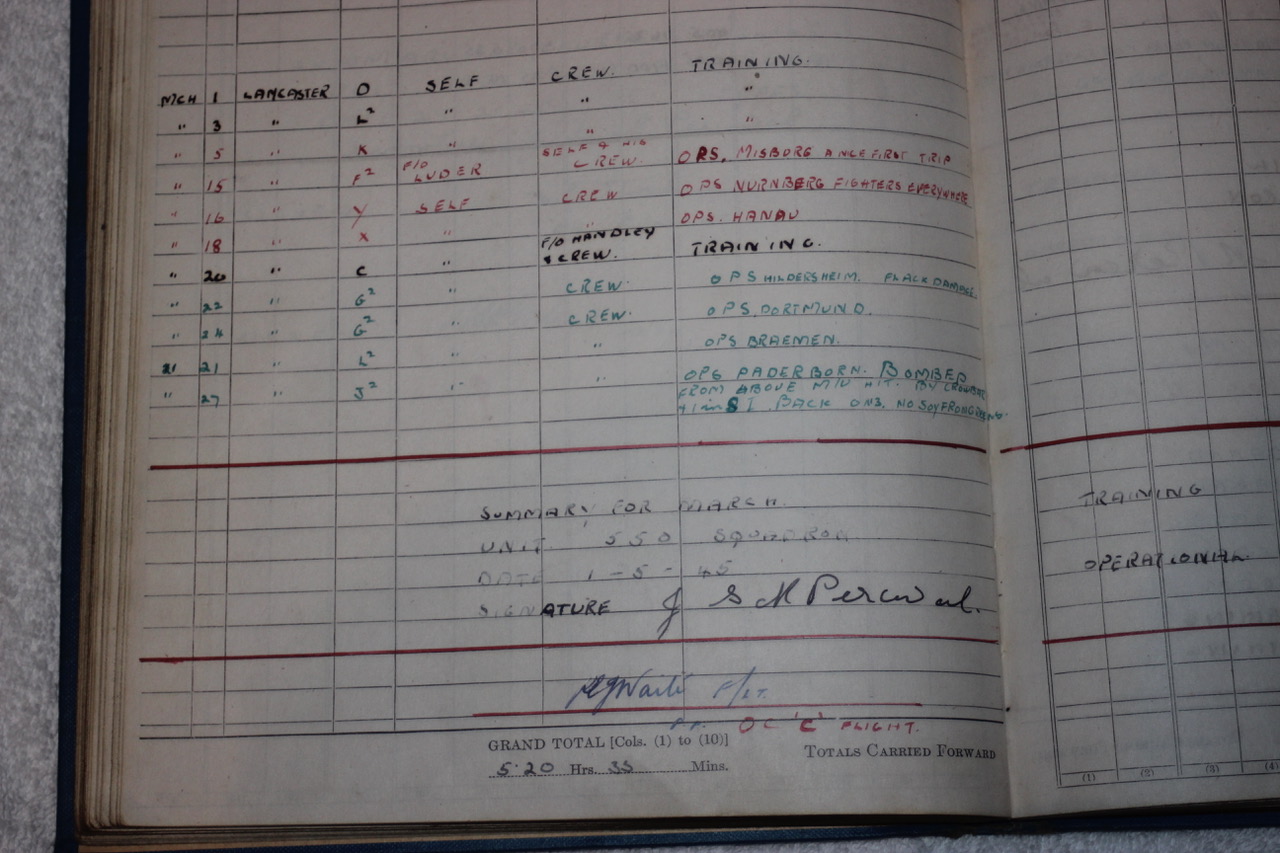 MCH 1 LANCASTER O SELF CREW. TRAINING.
" 3 " L² " " "
" 5 " K " " "
" 15 " F² F/O LUDER SELF & HIS CREW. OPS. MISBORG A NICE FIRST TRIP
" 16 " Y SELF CREW OPS NURNBERG FIGHTERS EVERYWHERE
" 18 " X " " OPS. HANAU
" 20 " C " F/O HANDLEY & CREW. TRAINING.
" 22 " G² " CREW. OPS HILDERSHEIM. FLACK DAMAGE
" 24 " G² " CREW. OPS. DORTMUND.
21 21 " L² " " OPS BRAEMEN.
" 27 " J² " " OPS PADERBORN. BOMBED
FROM ABOVE M/U HIT. BY
BACK ON 3. NO
SUMMARY FOR MARCH.
UNIT. 550 SQUADRON
DATE 1-5-45
SIGNATURE J S M Percival.
TRAINING
OPERATIONAL
F/LT.
OC 'C' FLIGHT.
GRAND TOTAL [Cols. (1) to (10)]
520 Hrs. 35 Mins.
TOTALS CARRIED FORWARD
(1) (2) (3) (4)